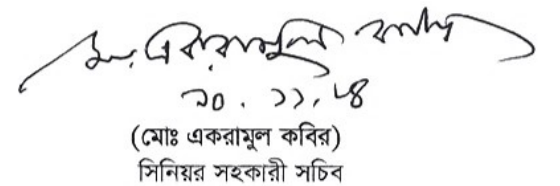 মো. একরামুল কবির
(মোঃ একরামুল কবির)
সিনিয়র সহকারী সচিব